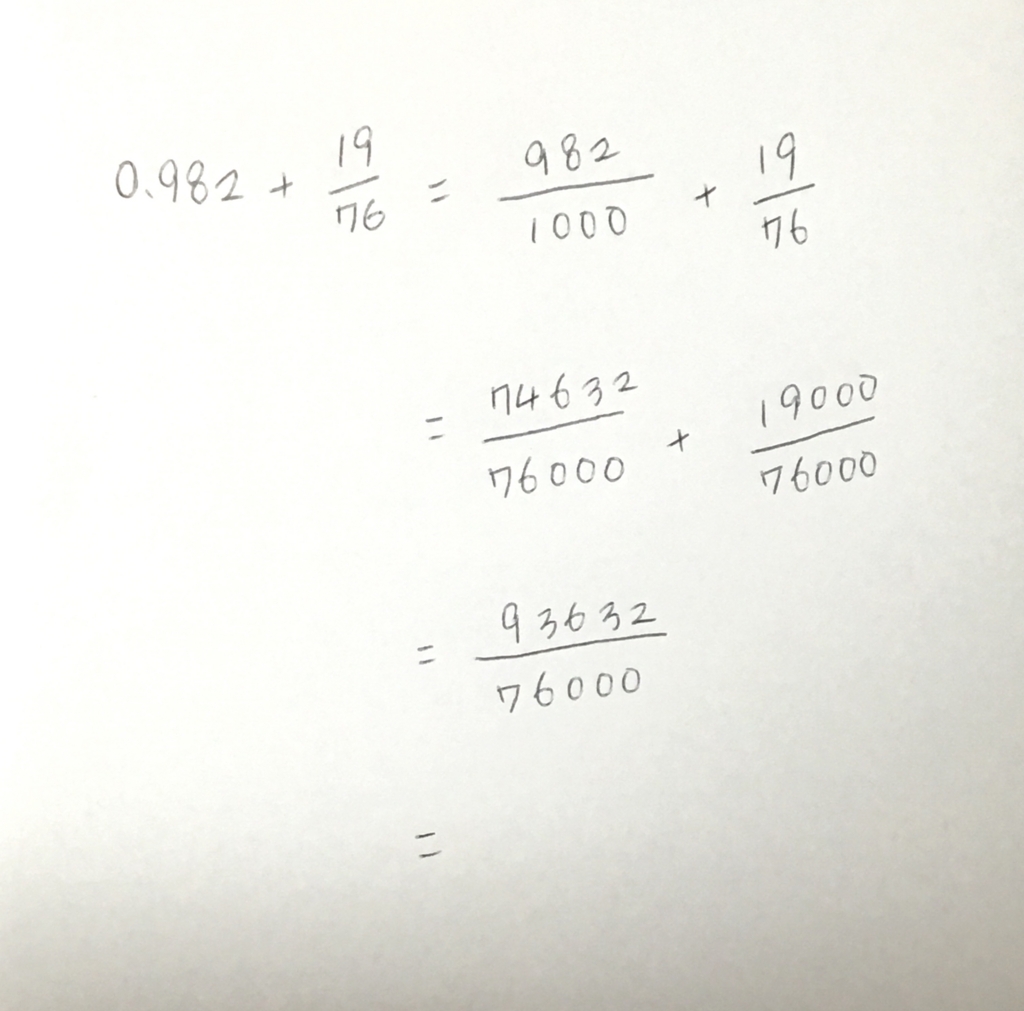 0.982 + 19/76 = 982/1000 + 19/76
= 74632/76000 + 19000/76000
= 93632/76000
=